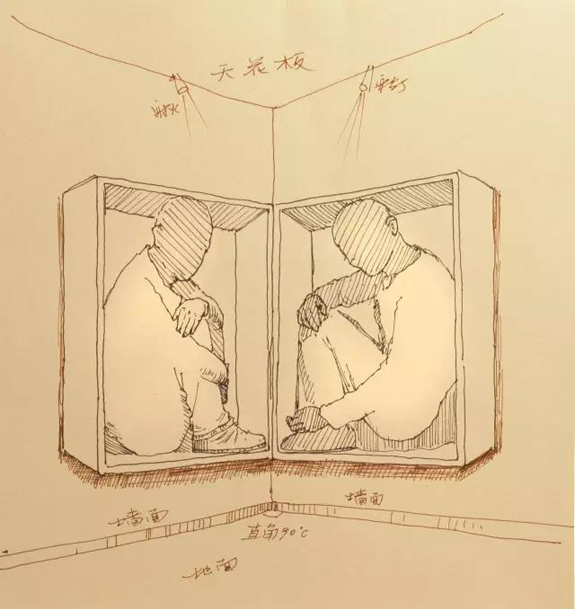 天花板
射灯
射灯
墙面
墙面
直角90℃
地面